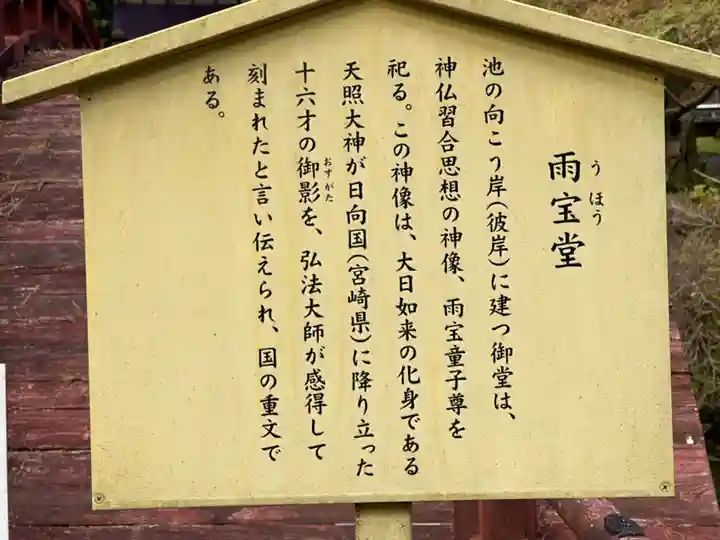 雨宝堂
うほう
池の向こう岸(彼岸)に建つ御堂は、
神仏習合思想の神像、雨宝童子尊を
祀る。この神像は、大日如来の化身である
天照大神が日向国(宮崎県)に降り立った
十六才の御影を、弘法大師が感得して
おすがた
刻まれたと言い伝えられ、国の重文で
ある。